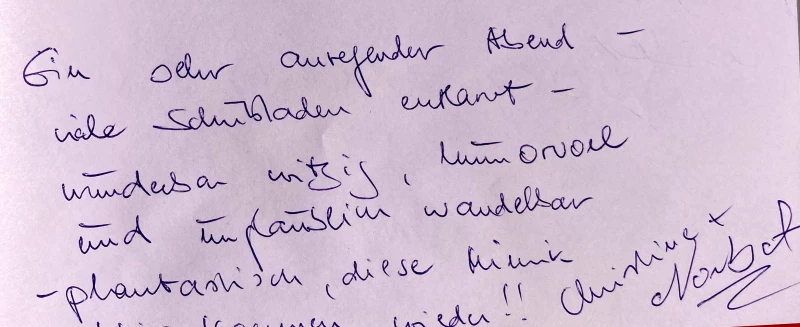 Ein sehr anregender Abend –
viele Schubladen erkannt –
wunderbar witzig, humorvoll
und unglaublich wandelbar
– phantastisch, diese Mimik
kommen wieder!! Christine + Norbert